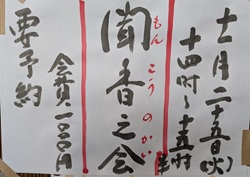 十一月二十五日(火)
十四时〜十五时半
聞香之会
もんこうのかい
会費一〇〇〇円
要予約